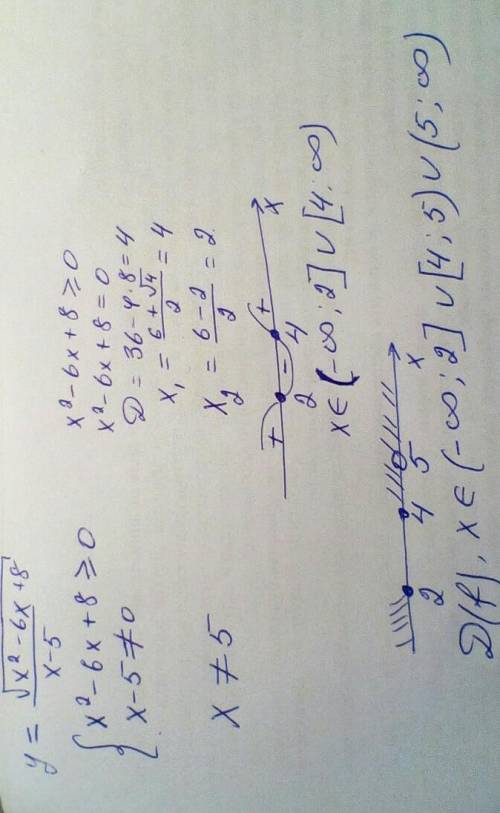 y = √(x² - 6x + 8) / (x - 5)
{ x² - 6x + 8 ≥ 0
x - 5 ≠ 0
x ≠ 5
x² - 6x + 8 ≥ 0
x² - 6x + 8 = 0
D = 36 - 4·8 = 4
x₁ = (6 + √4) / 2 = 4
x₂ = (6 - 2) / 2 = 2
+ - +
2 4 x
x ∈ (-∞; 2] ∪ [4; ∞)
2 4 5 x
D(f), x ∈ (-∞; 2] ∪ [4; 5) ∪ (5; ∞)